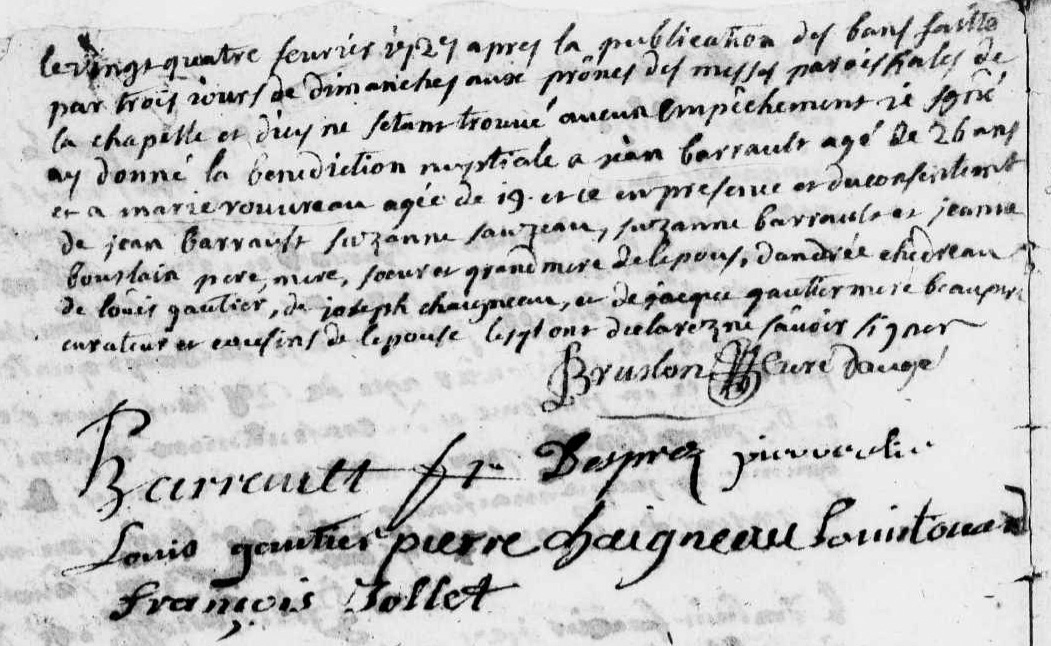 le vingt quatre feurier 1727 apres la publication des bans faitte
par trois iours de dimanches aux prônes des messes paroishales de
la chapelle et d'icy ne setant trouvé aucun empêchement ie sgné
ay donné la benediction nuptiale a jean barrault agé de 26 ans
et a marie rouureau agée de 19. et ce en presence et du consentemt
de jean barrault suzanne sauzeau, suzanne barrault et jeanne
bouslain pere, mere, soeur et grand mere de lepous, dandrée chedreau
de loüis gautier, de joseph chaigneau, et de jacque gautier mere beaupere
curateur et cousins de lepouse lesqls ont declarez ne sávoir signer
Bruslon Curé Daugé
Barrault Desprez
Louis gautier pierre chaigneau Louis touard
françois Jollet